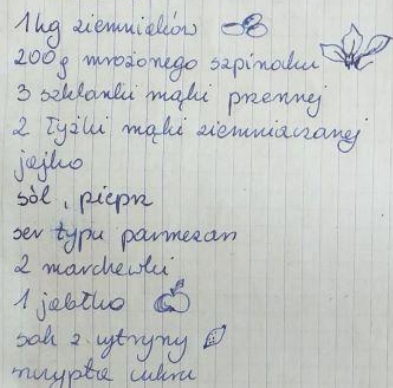 1 kg ziemniaków
200 g mrożonego szpinaku
3 szklanki mąki pszennej
2 łyżki mąki ziemniaczanej
jajko
sól, pieprz
ser typu parmezan
2 marchewki
1 jabłko
sok z cytryny
szczypta cukru